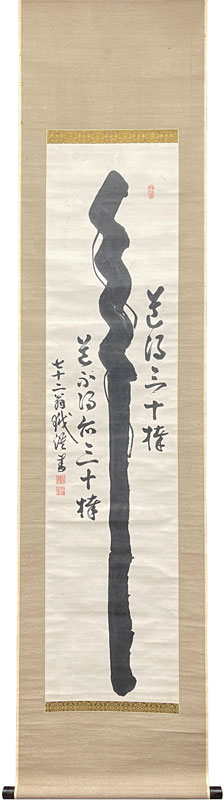 道得三十棒
道不得亦三十棒
七十二翁
書